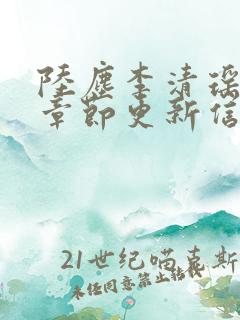 陸塵李清瑤
章節更新信
21世纪喵喜斯
未经同意禁止转载